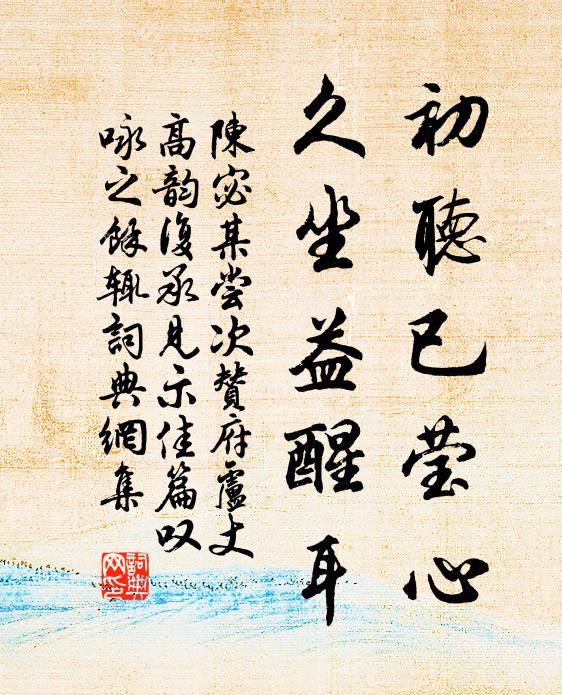 初聽已莹心
久坐益醒耳
陳宓某尝次賛府盧丈
高韵復承見示佳篇叹
咏之餘辄詞典網集
詞典
网